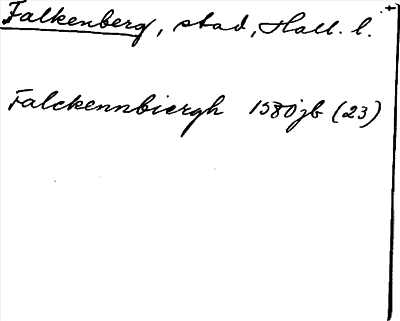 Falkenberg, stad, Hall. l. +
Falckennbiergh 1580 jb (23)